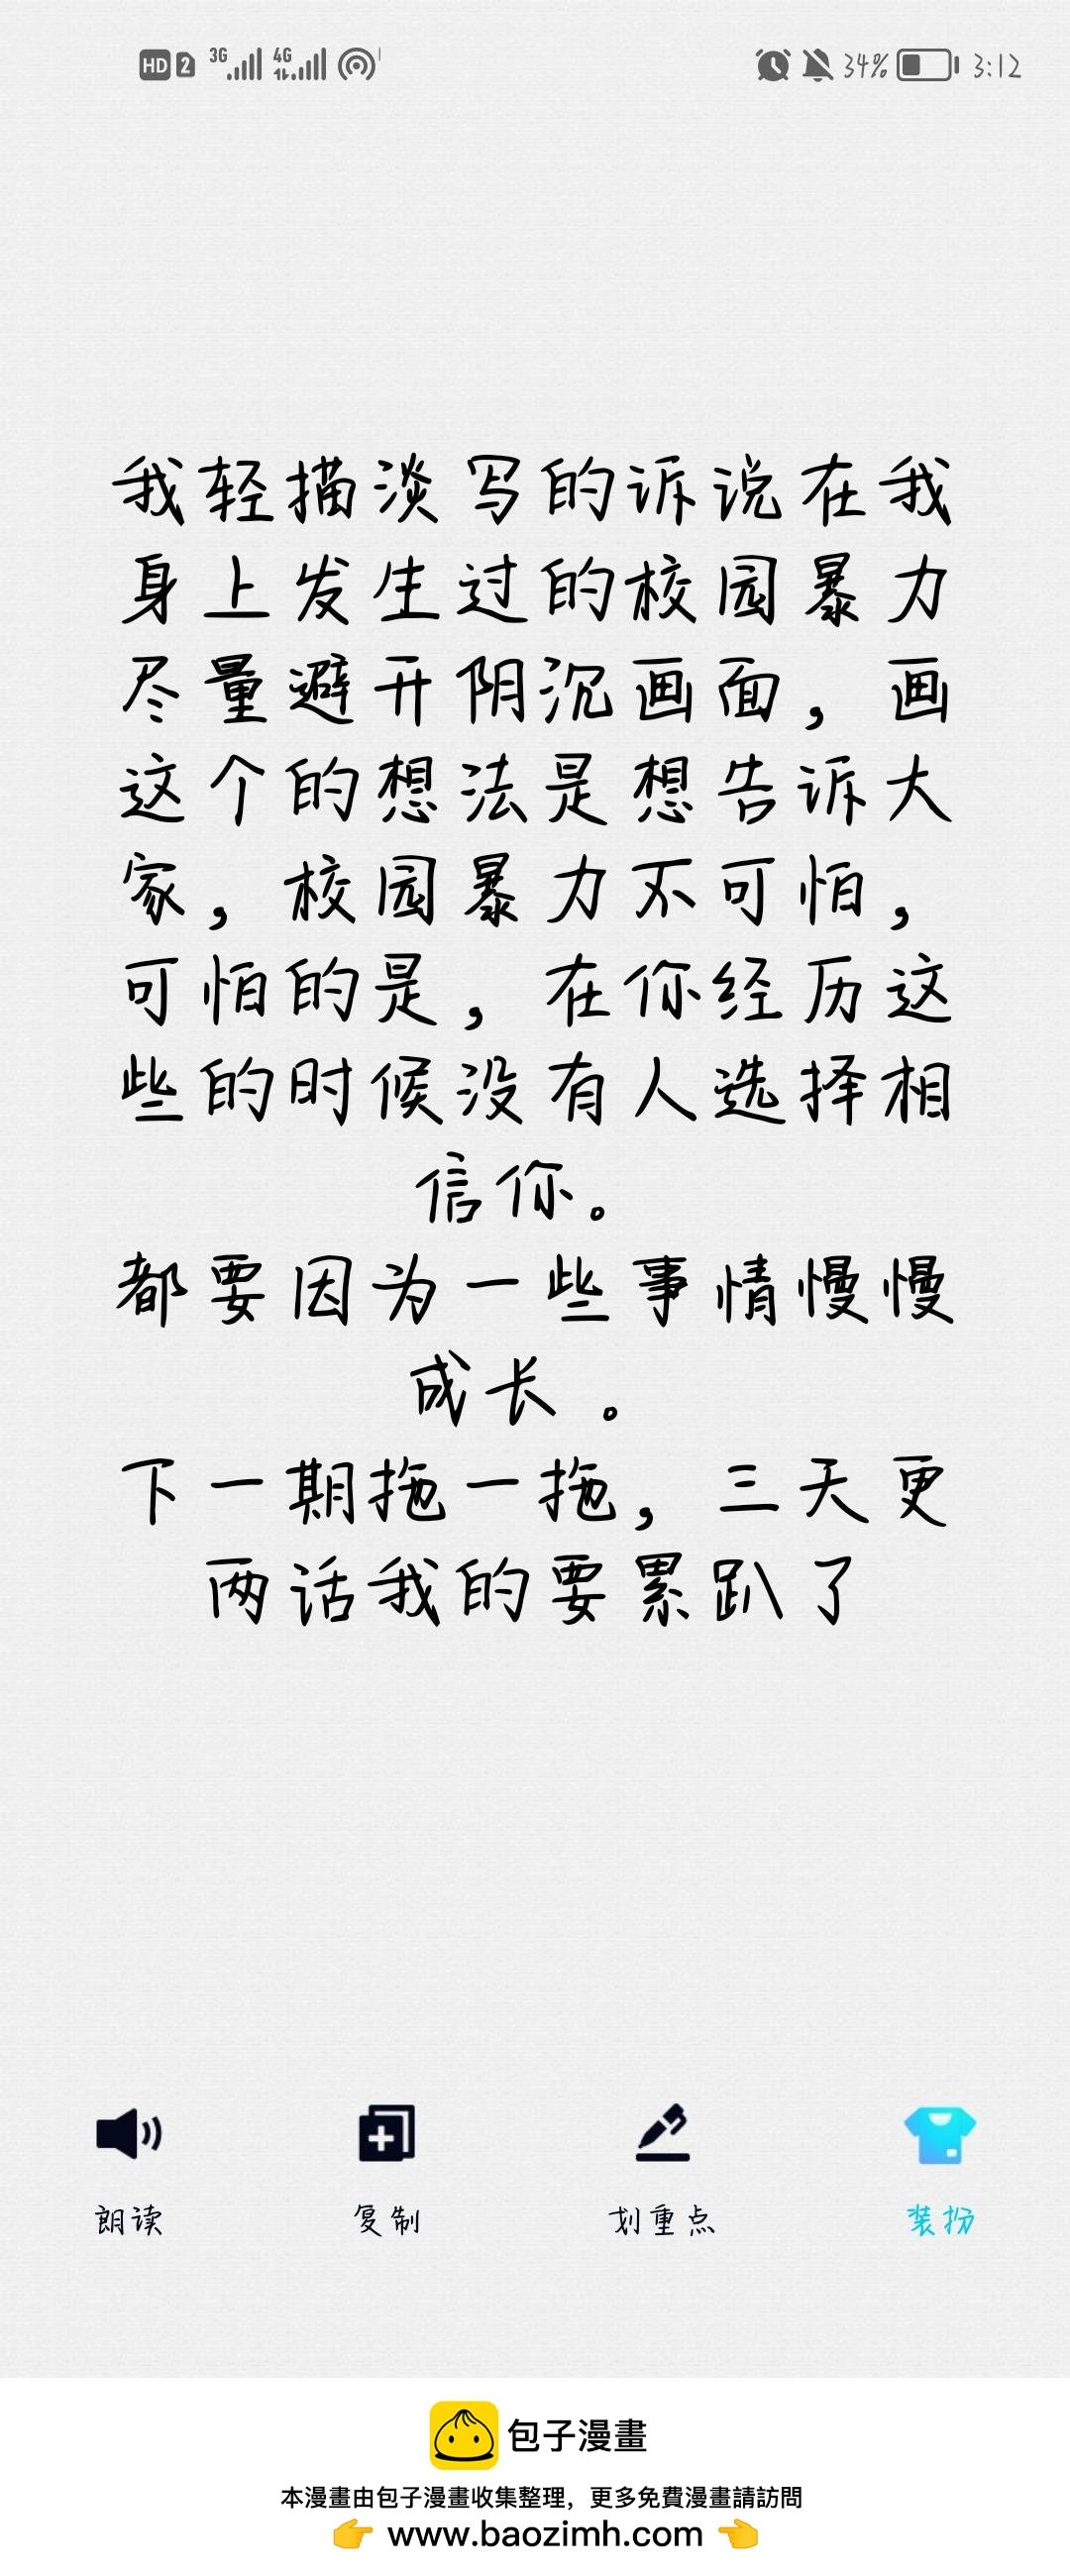 HD 2 3G 4G 34% 3:12
我轻描淡写的诉说在我
身上发生过的校园暴力
尽量避开阴沉画面，画
这个的想法是想告诉大
家，校园暴力不可怕，
可怕的是，在你经历这
些的时候没有人选择相
信你。
都要因为一些事情慢慢
成长 。
下一期拖一拖，三天更
两话我的要累趴了
朗读 复制 划重点 装扮
包子漫畫
本漫畫由包子漫畫收集整理，更多免費漫畫請訪問
www.baozimh.com